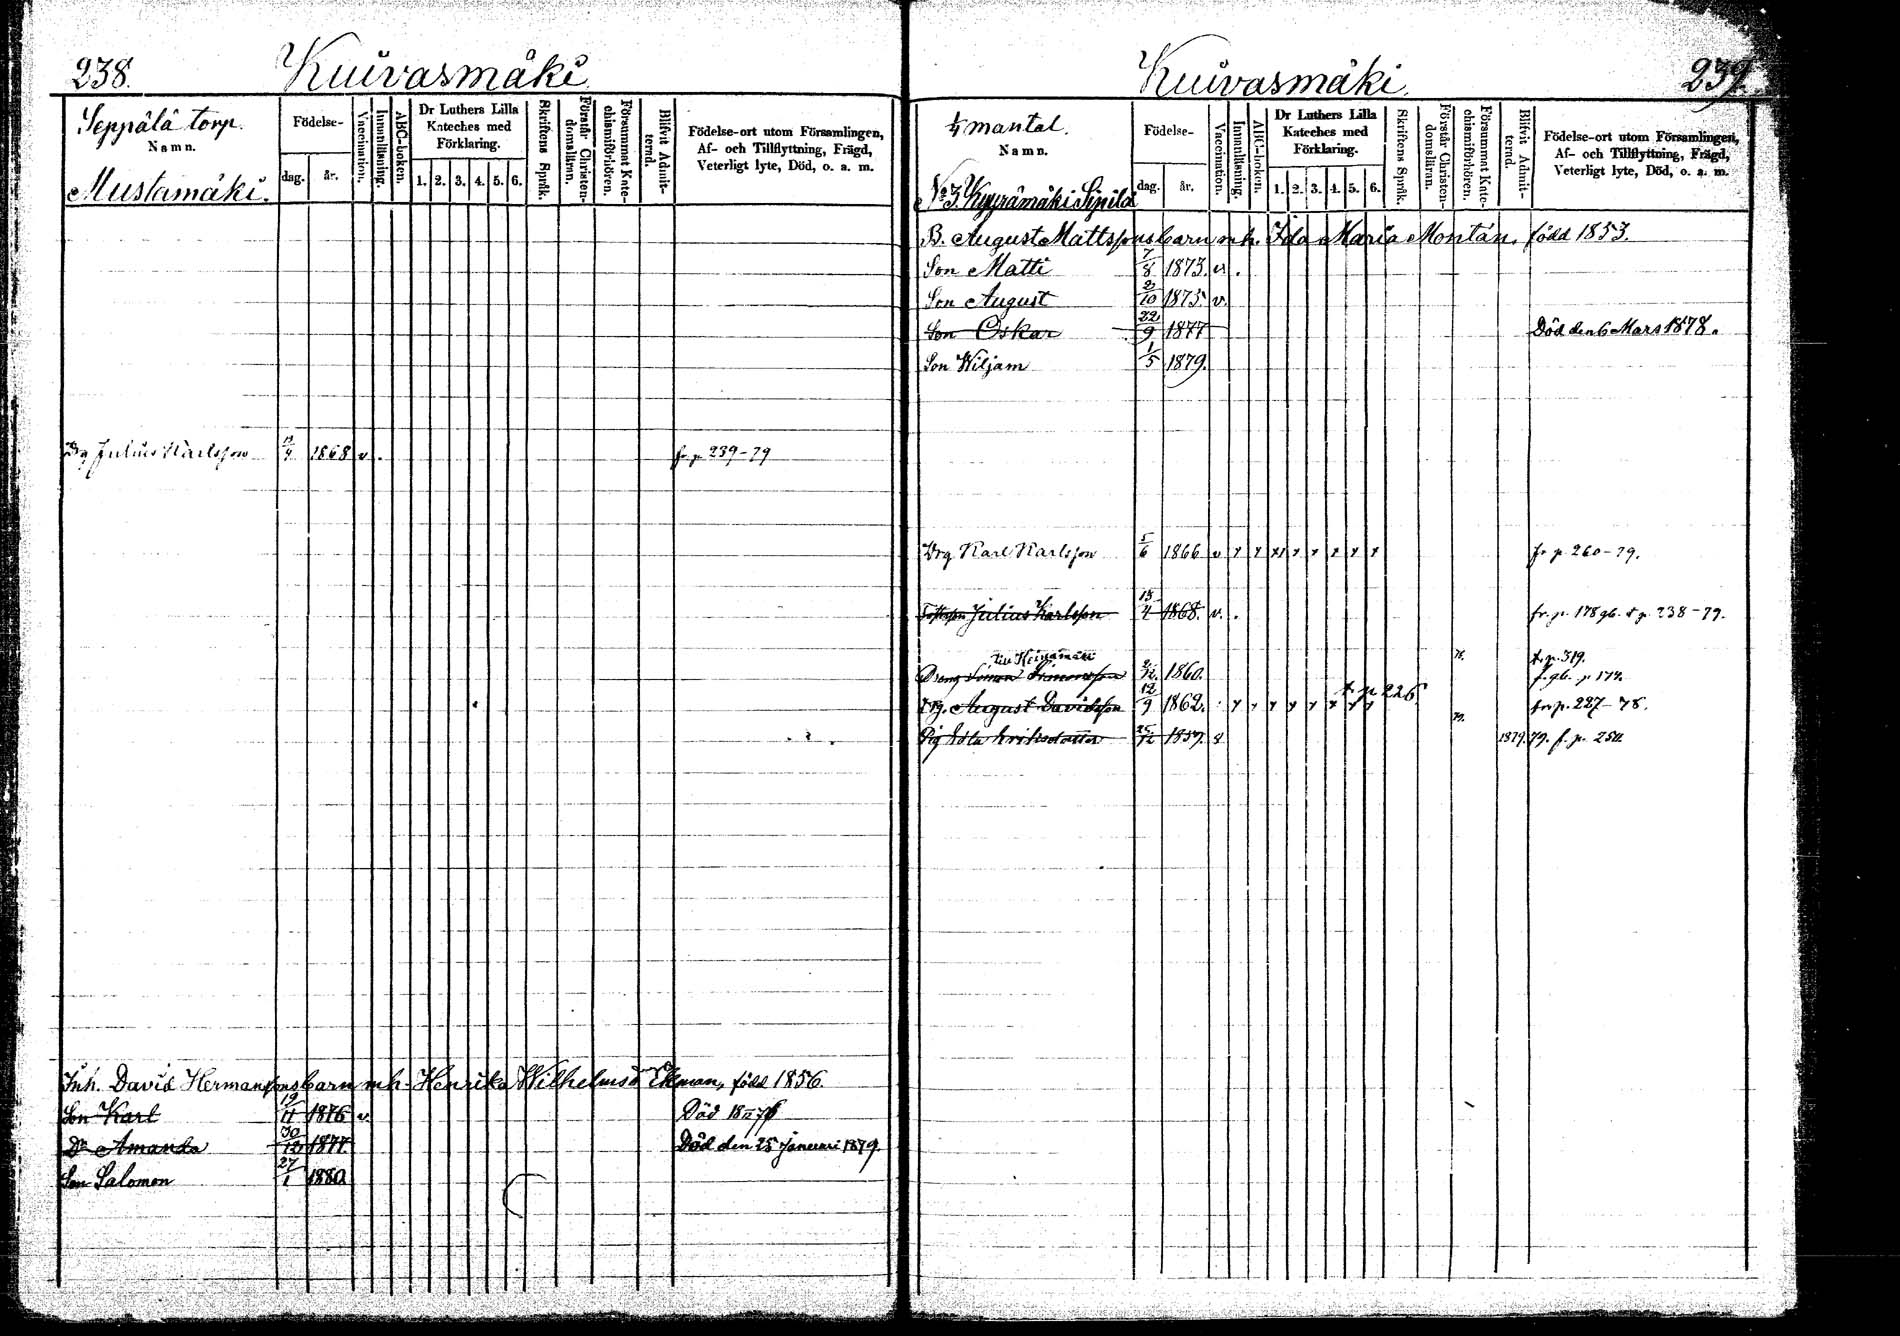 238. Kuivasmäki
Seppälä torp.
Namn.
Mustamäki.
Födelse-
dag. år.
Vaccination.
Innanläsning.
ABC-boken.
Dr Luthers Lilla
Kateches med
Förklaring.
1. 2. 3. 4. 5. 6.
Skriftens Språk.
Förstår Christen-
domsläran.
Försummat Kate-
chismiförhören.
Blifvit Admit-
ternd.
Födelse-ort utom Församlingen,
Af- och Tillflyttning, Frägd,
Veterligt lyte, Död, o. a. m.
Drg Julius Karlsson 13/4 1868 v . fr. p. 239-79
Inh. David Hermanssons barn m.h. Henrika Wilhelmsd Ekman, född 1856.
Son Karl 19/11 1876 v. Död
Dr Amanda 30/12 1877. Död den 25 Januari 1879.
Son Salomon 27/1 1880
Kuivasmäki. 239.
1/4 mantal.
Namn.
No 3. Kyyrämäki Sipilä
Födelse-
dag. år.
Vaccination.
Innanläsning.
ABC-boken.
Dr Luthers Lilla
Kateches med
Förklaring.
1. 2. 3. 4. 5. 6.
Skriftens Språk.
Förstår Christen-
domsläran.
Försummat Kate-
chismiförhören.
Blifvit Admit-
ternd.
Födelse-ort utom Församlingen,
Af- och Tillflyttning, Frägd,
Veterligt lyte, Död, o. a. m.
B. August Mattssons barn m.h. Ida Maria Montán, född 1853.
Son Matti 7/8 1873. v .
Son August 2/10 1875 v.
Son Oskar 22/9 1877 Död den 6 Mars 1878.
Son Wiljam 1/5 1879.
Drg Karl Karlsson 5/6 1866 v x x x x x x x x fr p. 260-79.
Julius Karlsson 13/4 1868. v. . fr. p. 178 gb. t p. 238-79.
till Heinämäki t. p. 319.
Dreng Simon Simonsson 1860. f. gb. p 174.
t. p 226
Drg. August Davidsson 12/9 1862. x x x x x x x x fr p. 227-78.
Pig Eriksdotter 25/12 1857. 1879. 79. f. p.